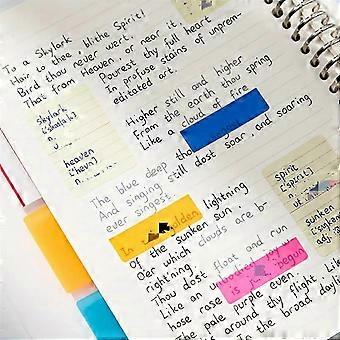 To a Skylark
Hair to thee, blithe Spirit!
Bird thou never wert,
That from Heaven, or near it,
Pourest thy full heart
In profuse stains of unprem-
editated art.
Higher still and higher
From the earth thou spring
Like a cloud of fire
The blue deep thou
And singing still dost soar, and soaring
ever singest.
In golden lightning
of the sunken sun,
O'er which clouds are b-
right'ning
Thou dost float and run
Like an unbodied joy
hose race is just begun
The pale purple even
around thy flight. Like
In the broad dayli
skylark
n.
v.
heaven
['hevn]
n.
Spirit
['spirit]
n.
sunken
adj.